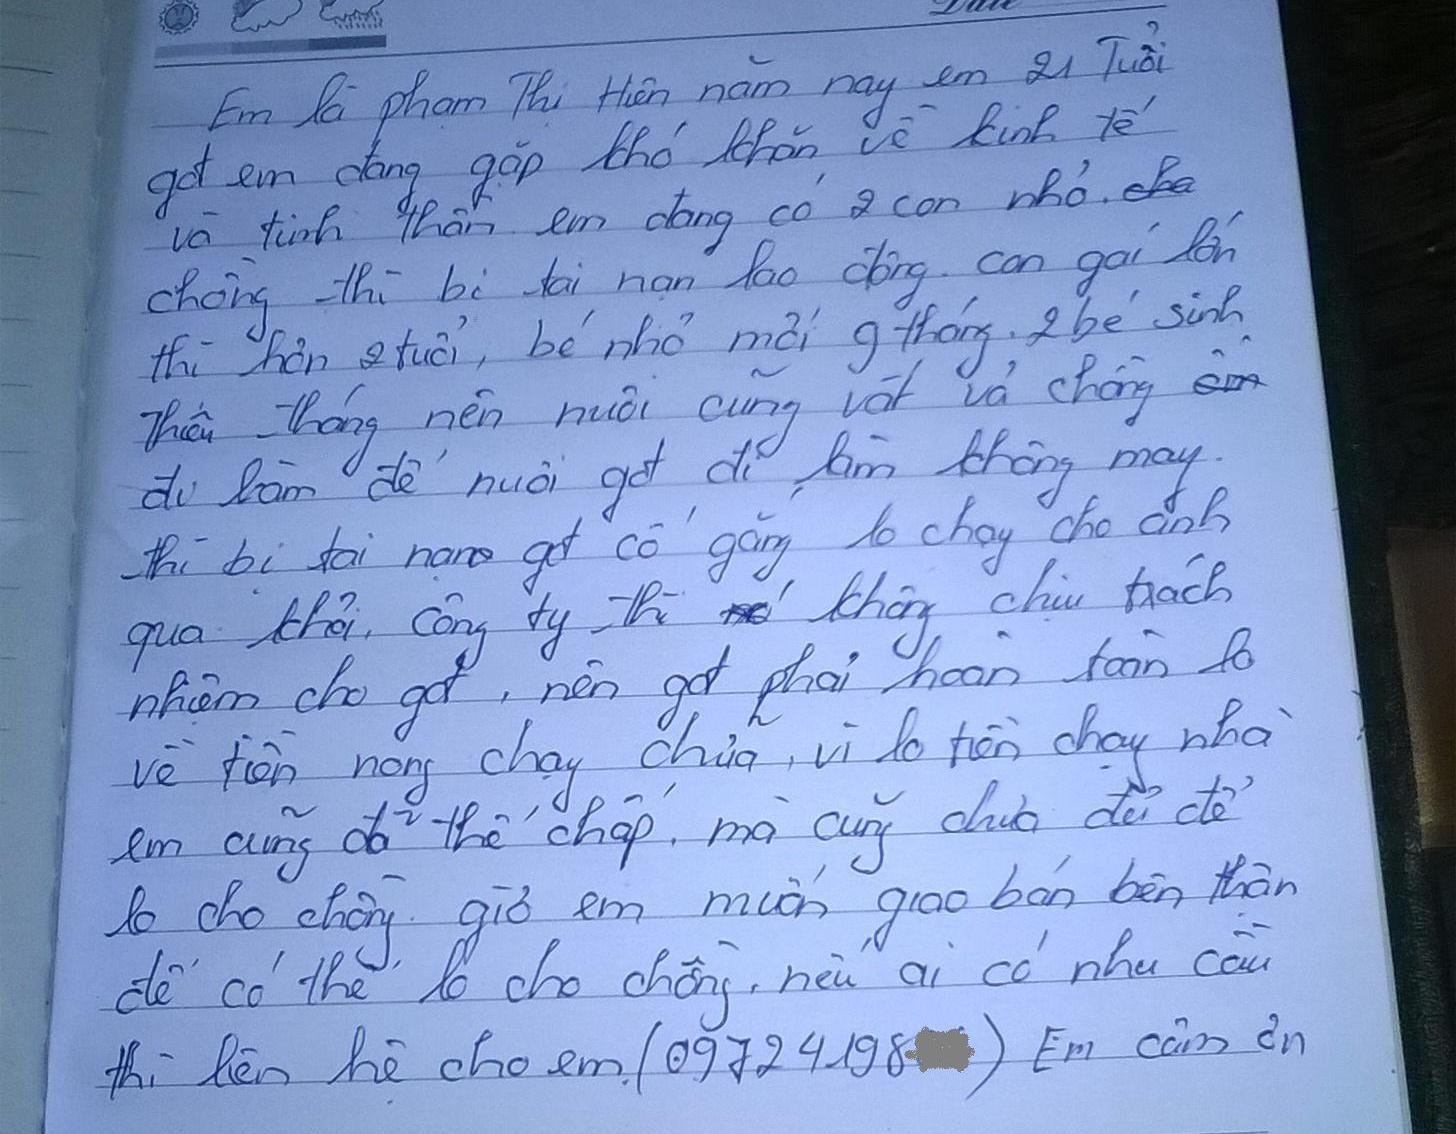 Date
Em là phạm Thị Hiên năm nay em 21 Tuổi
gđ em đang gặp khó khăn về kinh tế
và tinh thần em đang có 2 con nhỏ. cha
chồng thì bị tai nạn lao động. con gái lớn
thì hơn 2 tuổi, bé nhỏ mới 9 tháng. 2 bé sinh
Thiếu tháng nên nuôi cũng vất vả chồng em
đi làm để nuôi gđ đi làm không may.
thì bị tai nạn gđ cố gắng lo chạy cho anh
qua khỏi. Công ty thì không chịu trách
nhiệm cho gđ, nên gđ phải hoàn toàn lo
về tiền nong chạy chữa, vì lo tiền chạy nhà
em cũng đã thế chấp. mà cũng chưa đủ để
lo cho chồng. giờ em muốn giao bán bên thân
để có thể lo cho chồng, nếu ai có nhu cầu
thì liên hệ cho em. (09724198) Em cảm ơn